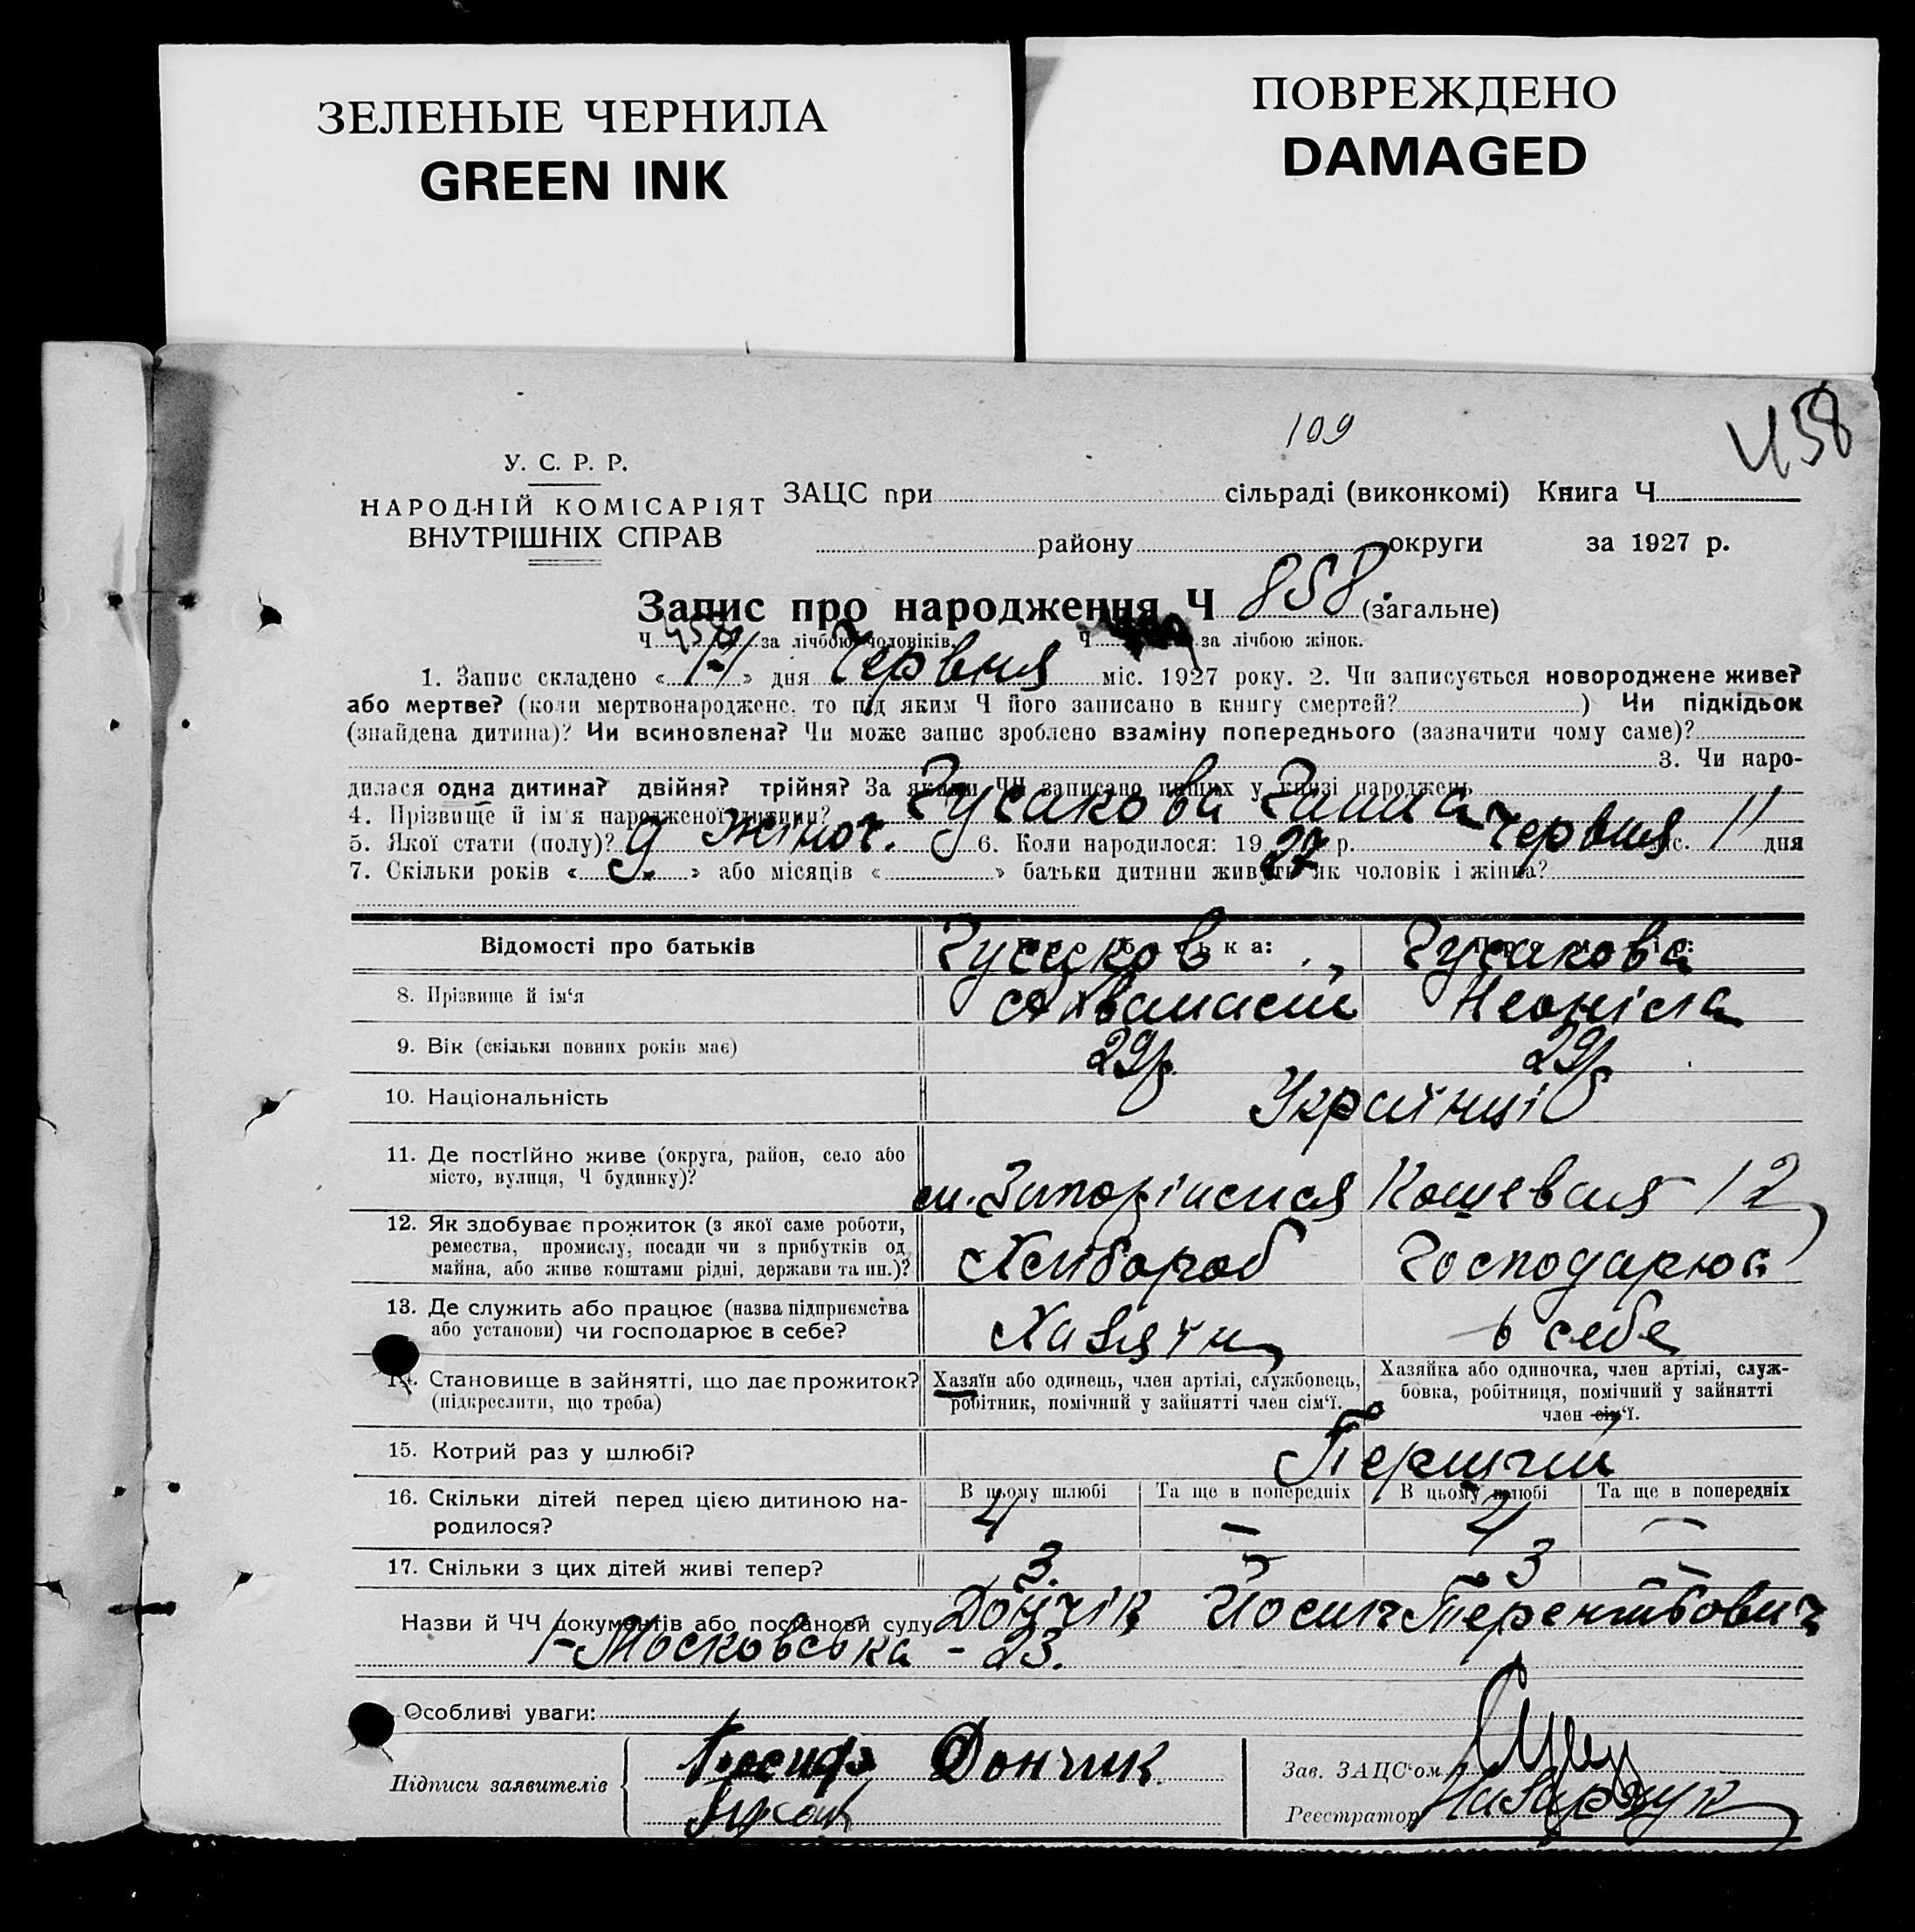 ЗЕЛЕНЫЕ ЧЕРНИЛА
GREEN INK
ПОВРЕЖДЕНО
DAMAGED
109
458
У. С. Р. Р.
НАРОДНІЙ КОМІСАРІЯТ
ВНУТРІШНІХ СПРАВ
ЗАЦС при сільраді (виконкомі) Книга Ч.
району округи за 1927 р.
Запис про народження Ч 858 (загальне)
Ч 458 за лічбою чоловіків. Ч за лічбою жінок.
1. Запис складено « 14 » дня Червня міс. 1927 року. 2. Чи записується новороджене живе?
або мертве? (коли мертвонароджене, то під яким Ч його записано в книгу смертей? ) Чи підкідьок
(знайдена дитина)? Чи всиновлена? Чи може запис зроблено взаміну попереднього (зазначити чому саме)?
3. Чи наро-
дилася одна дитина? двійня? трійня? За якими ЧЧ записано інших у книзі народжень
4. Прізвище й ім'я народженої дитини? Гусакова Ганна
5. Якої стати (полу)? Жіноч. 6. Коли народилося: 1927 р. Червня міс. 11 дня
7. Скільки років « 9 » або місяців « » батьки дитини живуть як чоловік і жінка?
Відомості про батьків
Про батька:
Про матір:
Гусаков
Гусакова
8. Прізвище й ім'я
Неоніла
9. Вік (скільки повних років має)
29р.
29р
10. Національність
Українці
11. Де постійно живе (округа, район, село або
місто, вулиця, Ч будинку)?
Кошевая 12
12. Як здобуває прожиток (з якої саме роботи,
ремества, промислу, посади чи з прибутків од
майна, або живе коштами рідні, держави та ин.)?
Хлібороб
Господарює
13. Де служить або працює (назва підприємства
або установи) чи господарює в себе?
Хазяїн
в себе
14. Становище в зайнятті, що дає прожиток?
(підкреслити, що треба)
Хазяїн або одинець, член артілі, службовець,
робітник, помічний у зайнятті член сім'ї.
Хазяйка або одиночка, член артілі, служ-
бовка, робітниця, помічний у зайнятті
член сім'ї.
15. Котрий раз у шлюбі?
Перший
16. Скільки дітей перед цією дитиною на-
родилося?
В цьому шлюбі
Та ще в попередніх
В цьому шлюбі
Та ще в попередніх
4 – 4 –
17. Скільки з цих дітей живі тепер?
3. – 3 –
Назви й ЧЧ документів або постанови суду Дончік Йосип Терентьович
1-Московська - 23.
Особливі уваги:
Підписи заявителів
Иосиф Дончик
Зав. ЗАЦС'ом
Реєстратор Назарчук